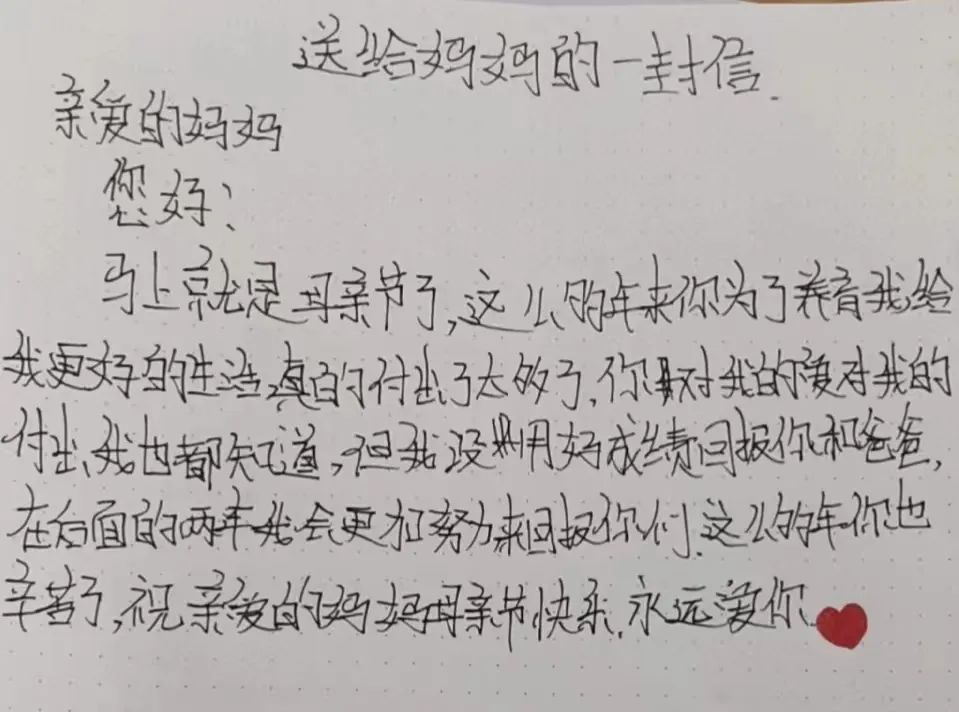 送给妈妈的一封信.
亲爱的妈妈
您好:
马上就是母亲节了,这么的年来你为了养育我,给
我更好的生活,真的付出了太够了,你对我的爱对我的
付出,我也都知道,但我没用好成绩回报你和爸爸,
在后面的两年我会更加努力来回报你们.这么的年你也
辛苦了,祝亲爱的妈妈母亲节快乐.永远爱你